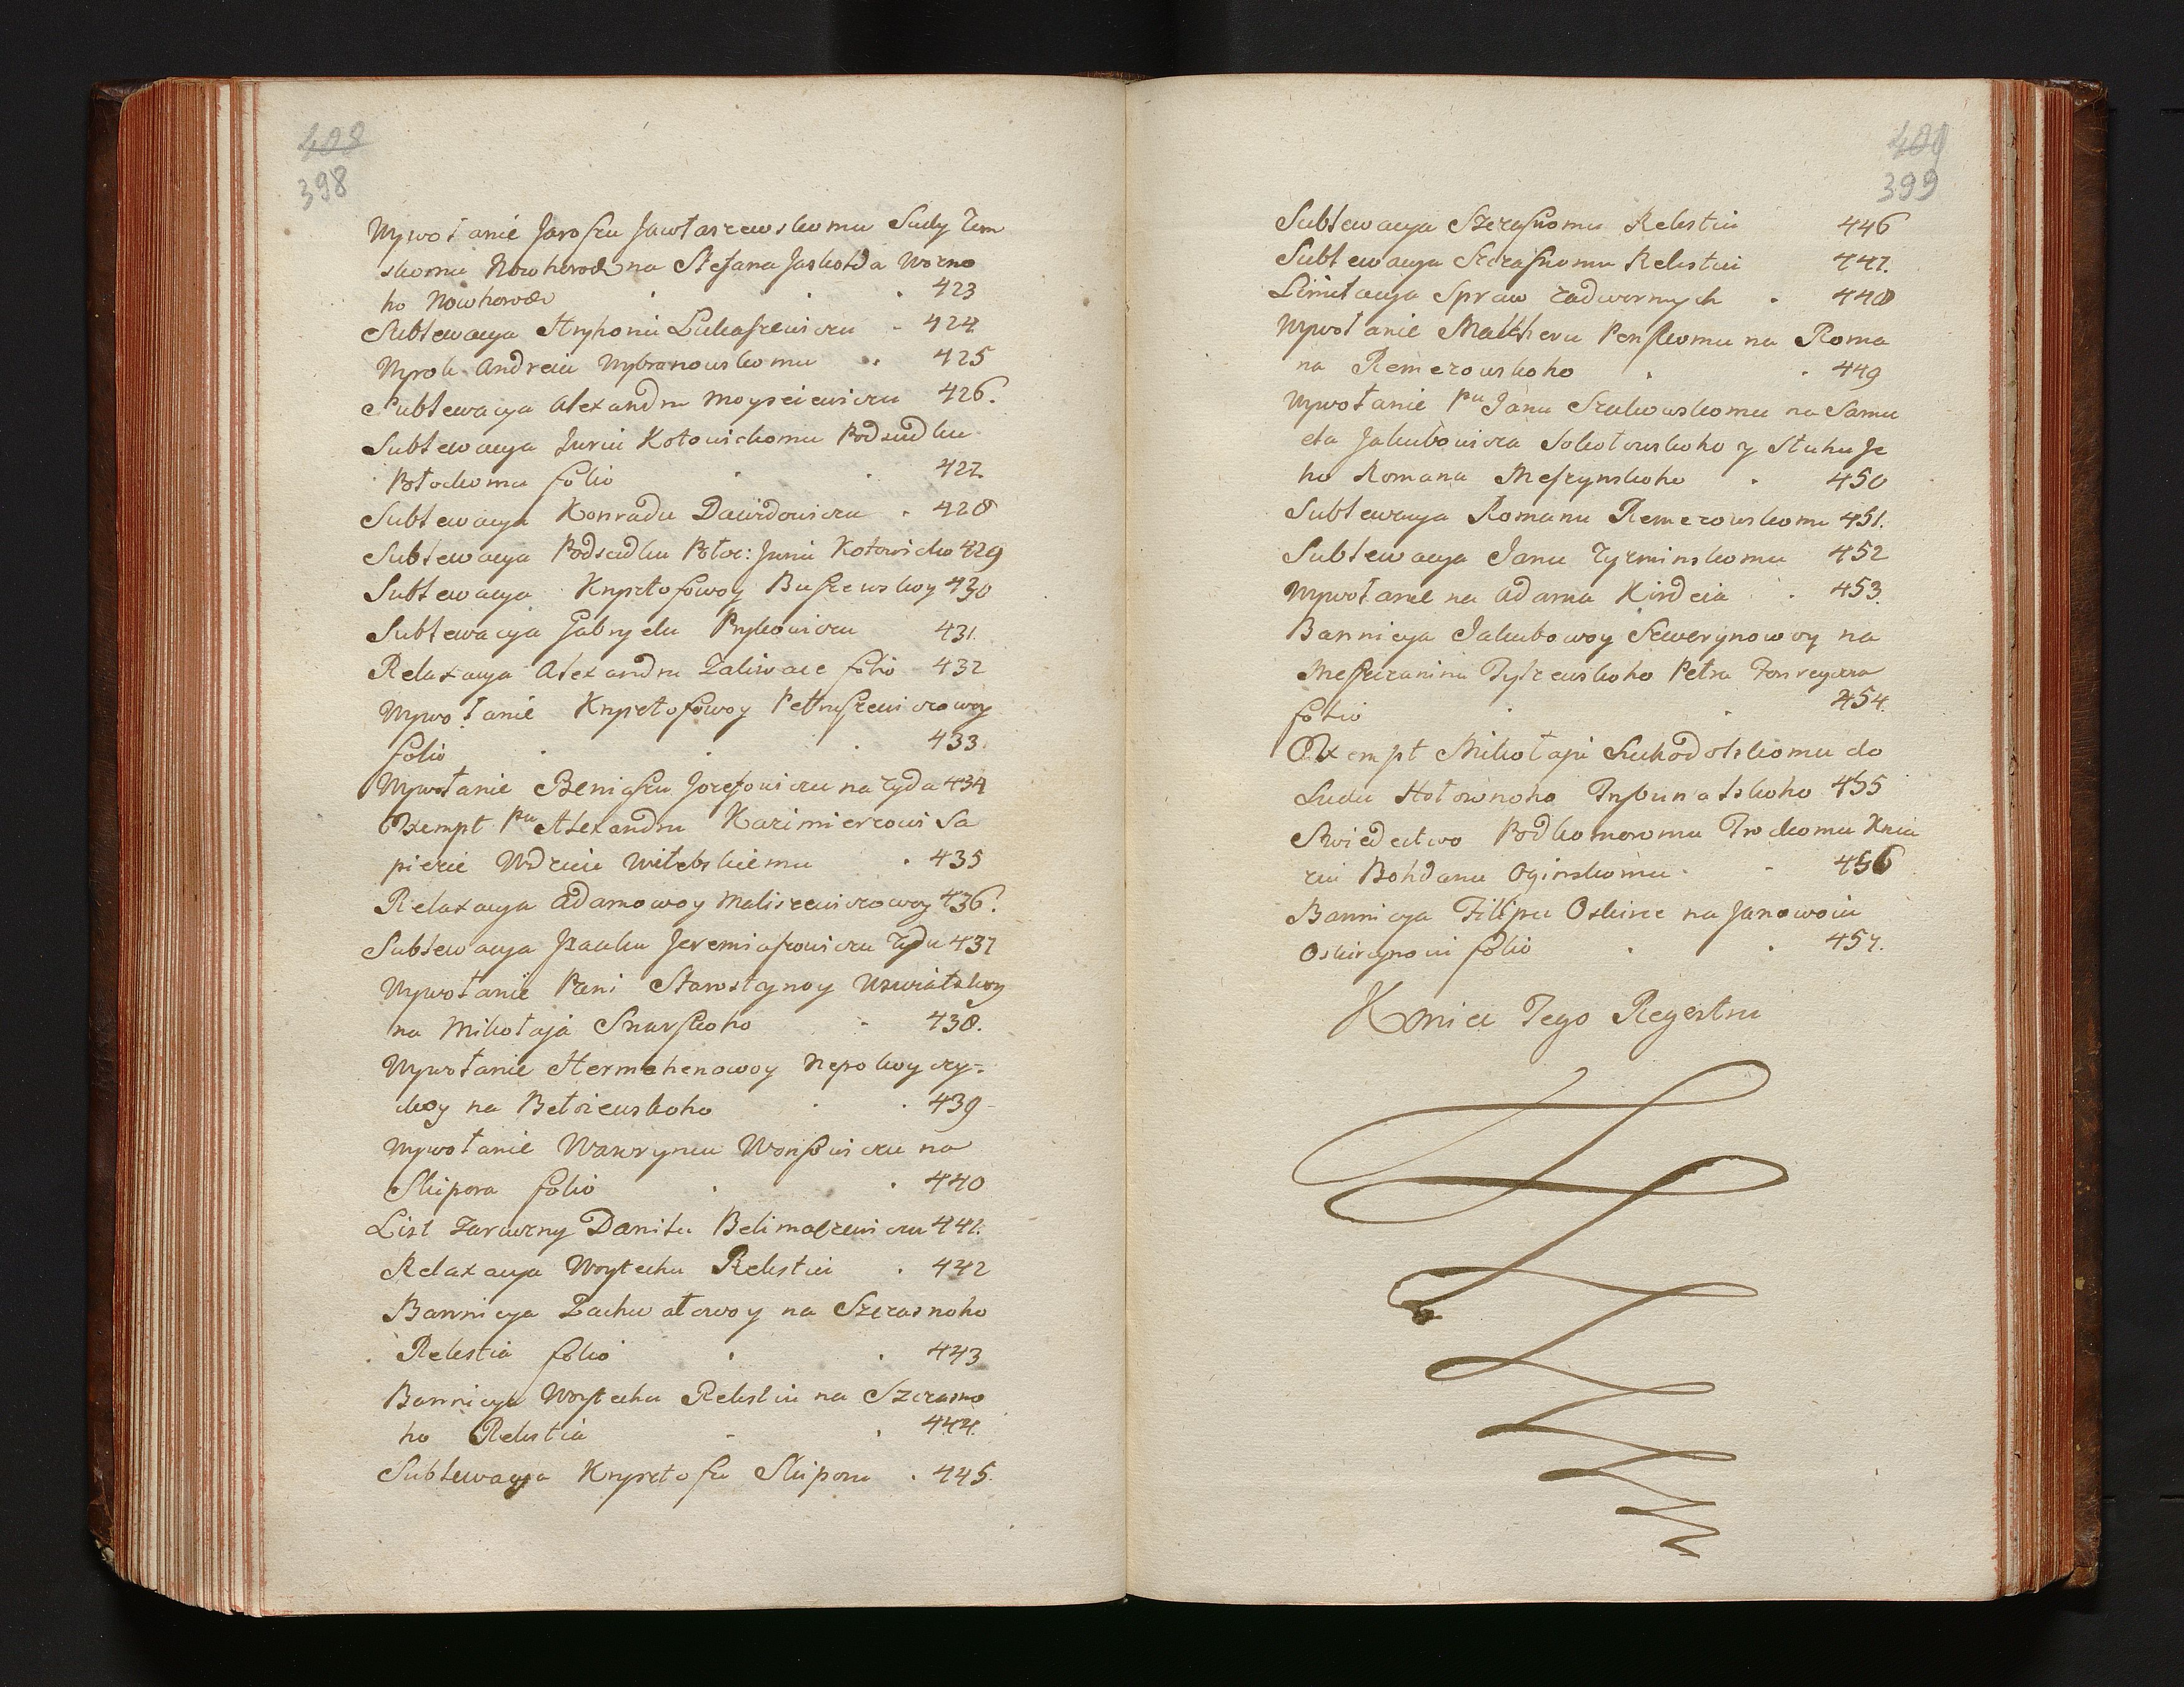 408
398
Wywołanie Jaroszu Jawłaszewskomu Sudy Zem
skomu Nowhorod na Stefana Jaskołda Wozno
ho Nowhorod 423
Sublewacya Hryhoriu Łukaszewiczu 424
Wyrok Andreiu Wybranowskomu 425
Sublewacya Alexandru Moyseiewiczu 426.
Sublewacya Juriu Kotowickomu Podsudku
Połockomu folio 427.
Sublewacya Konradu Dawidowiczu 428
Sublewacya Podsudku Połoc: Juriu Kotowicko 429
Sublewacya Krysztofowoy Buszewskoy 430
Sublewacya Gabryelu Rykowiczu 431.
Relaxacya Alexandru Zaliwace folio 432
Wywołanie Krysztofowoy Petruszewiczowoy
folio 433.
Wywołanie Beniaszu Jozefowiczu na Żyda 434
Exempt Pu Alexandru Kazimierzowi Sa
piezie Wdzciu Witebskiemu 435
Relaxacya Adamowoy Maliszewiczowoy 436.
Sublewacya Jzaaku Jeremiaszowiczu Żydu 437
Wywołanie Pani Starostynoy Uswiatskoy
na Mikołaja Snarskoho 438.
Wywołanie Hermohenowoy Nepokoyczy=
ckoy na Bełziewskoho 439
Wywołanie Wawryncu Wonsowiczu na
Skipora folio 440
List Zaruczny Daniłu Belimaczewiczu 441.
Relaxacya Woytechu Relestiu 442
Bannicya Zachwatowoy na Szczasnoho
Relestia folio 443
Bannicya Woytechu Relestiu na Szczasno
ho Relestia 444.
Sublewacya Krysztofu Skiporu 445.
409
399
Sublewacya Szczasnomu Relestiu 446
Sublewacya Szczasnomu Relestiu 447.
Limitacya Spraw zadwornych 448
Wywołanie Mattheru Penskomu na Roma
na Remerowskoho 449
Wywołanie Pu Janu Szukowskomu na Samu
ela Jakubowicza Sokołowskoho y Słuhu Je
ho Romana Meszynskoho 450
Sublewacya Romanu Remerowskomu 451.
Sublewacya Janu Tyrminskomu 452
Wywołanie na Adama Kirdeia 453.
Bannicya Jakubowoy Sewerynowoy na
Meszczanina Tyszewskoho Petra Fonregarra
folio 454.
Exempt Mikołaju Suchodolskomu do
Sudu Hołownoho Trybunalskoho 455
Swiedectwo Podkomoromu Trockomu Knia
ziu Bohdanu Oginskomu 456
Bannicya Filipu Oskirce na Janowoiu
Oskirczynoiu folio 457.
Koniec Tego Regestru